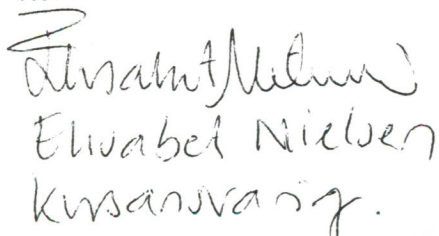 Elisabet Nielsen
Elisabet Nielsen
Kursansvarig.